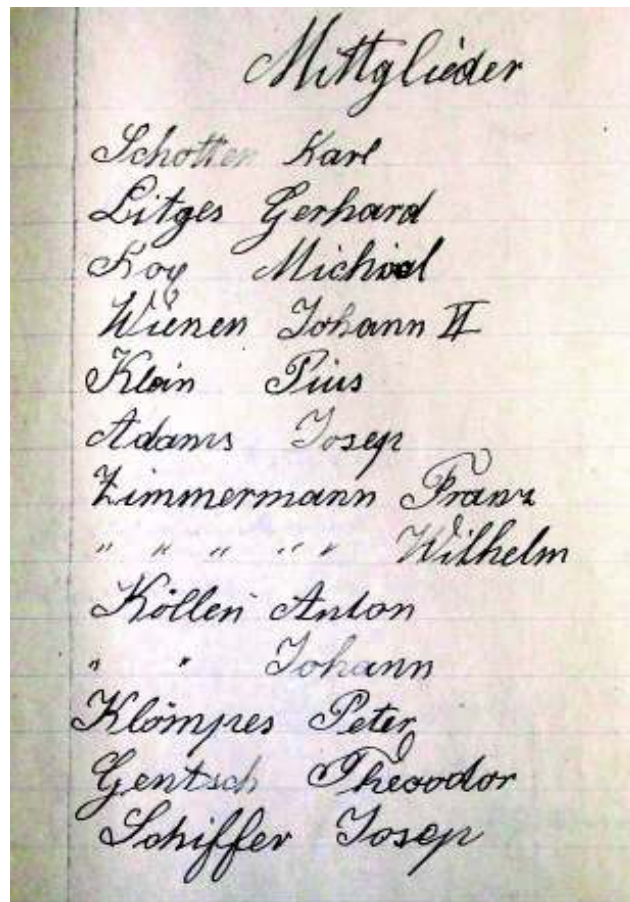 Mittglieder
Schotten Karl
Litges Gerhard
Kox Michael
Wienen Johann II
Klein Pius
Adams Josep
Zimmermann Franz
" " " " " Wilhelm
Köllen Anton
" " Johann
Klömpes Peter
Gentsch Theoodor
Schiffer Josep